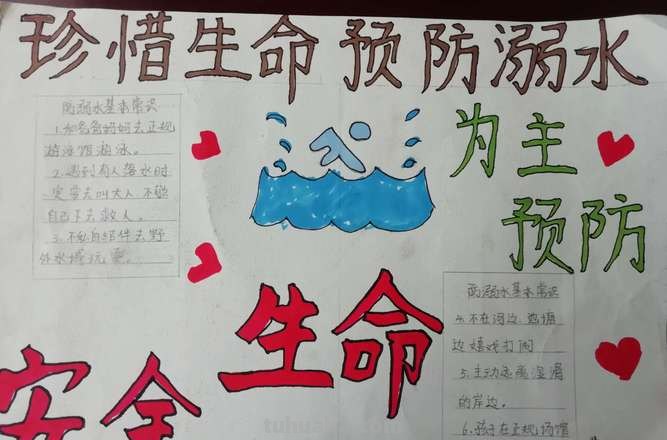 珍惜生命 预防溺水
防溺水基本常识
1.和爸爸妈妈去正规
游泳馆游泳。
2.遇到有人落水时
一定要去叫大人,不能
自己下去救人。
3.不私自结伴去野
外水域玩耍。
为主
预防
生命
安全
防溺水基本常识
4.不在河边、池塘
边嬉戏打闹
5.主动远离湿滑
的岸边。
6.孩子在正规场馆
tuhua